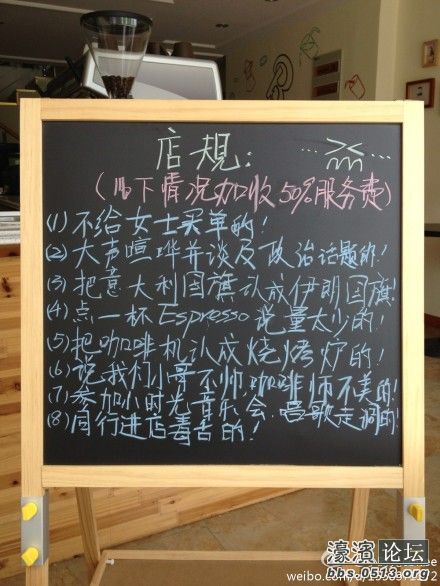 店规:
(以下情况加收50%服务费)
(1) 不给女士买单的!
(2) 大声喧哗并谈及政治话题的!
(3) 把意大利国旗认成伊朗国旗!
(4) 点一杯Espresso说量太少的!
(5) 把咖啡机认成烧烤炉的!
(6) 说我们小哥不帅,咖啡师不美的!
(7) 参加小时光音乐会,唱歌走调的!
(8) 同行进店毒舌的!
濠滨论坛
bbs.0513.org